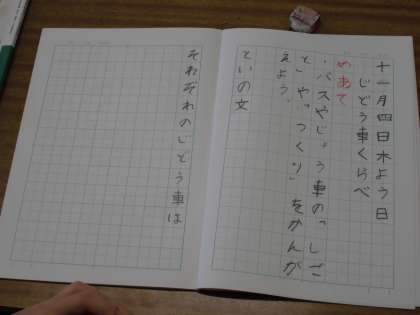 十一月四日木よう日
じどう車くらべ
めあて
・バスやじょう車の「しご
と」や「つくり」をかんが
えよう。
といの文
それぞれのじどう車は